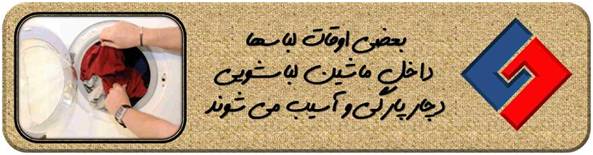 بعضی اوقات لباسها
داخل ماشین لباسشویی
دچار پارگی و آسیب می شوند